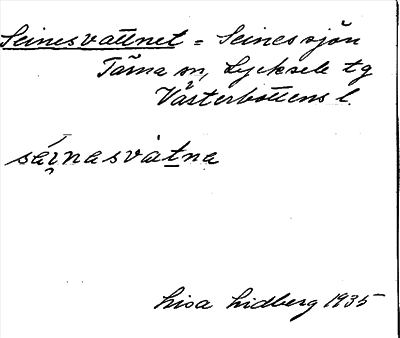 Seinesvattnet = Seinessjön
Tärna sn, Lycksele tg
Västerbottens l.
sáı̨nasvàṯna
Lisa Lidberg 1935